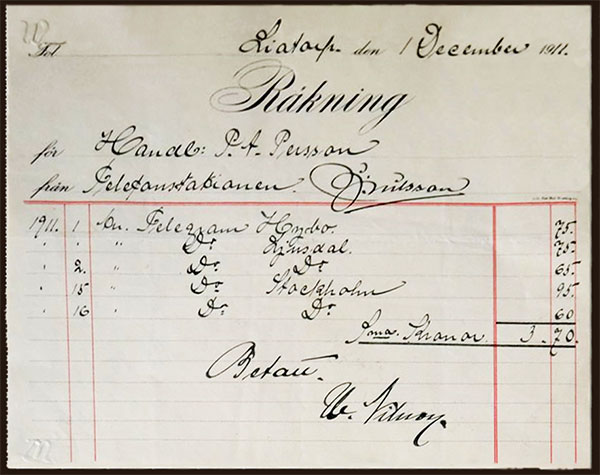 Tel
Liatorp den 1 December 1911.
Räkning
för Handl: P. A. Persson
från Telefonstationen.
1911. 1 Telegram Hybo. 75.
" " " Do Ljusdal. 75.
" 2. " Do Do 65.
" 15 " Do Stockholm 95.
" 16 Do Do 60
Sma. Kronor 3.70.
Betalt.